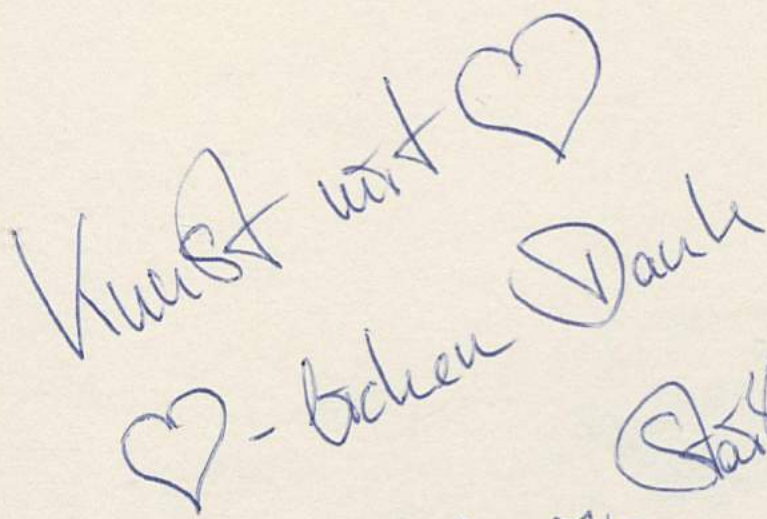 Kunst mit ♡
♡-lichen Dank